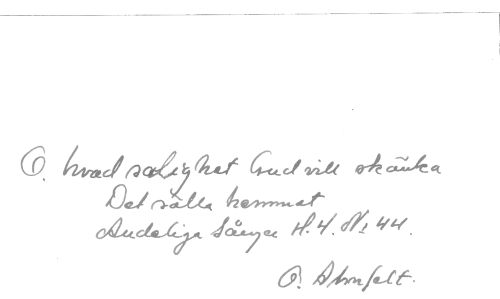 O. hvad salighet Gud vill skänka
Det sälla hemmet
Andeliga Sånger H.4. No 44.
O. Ahnfelt.